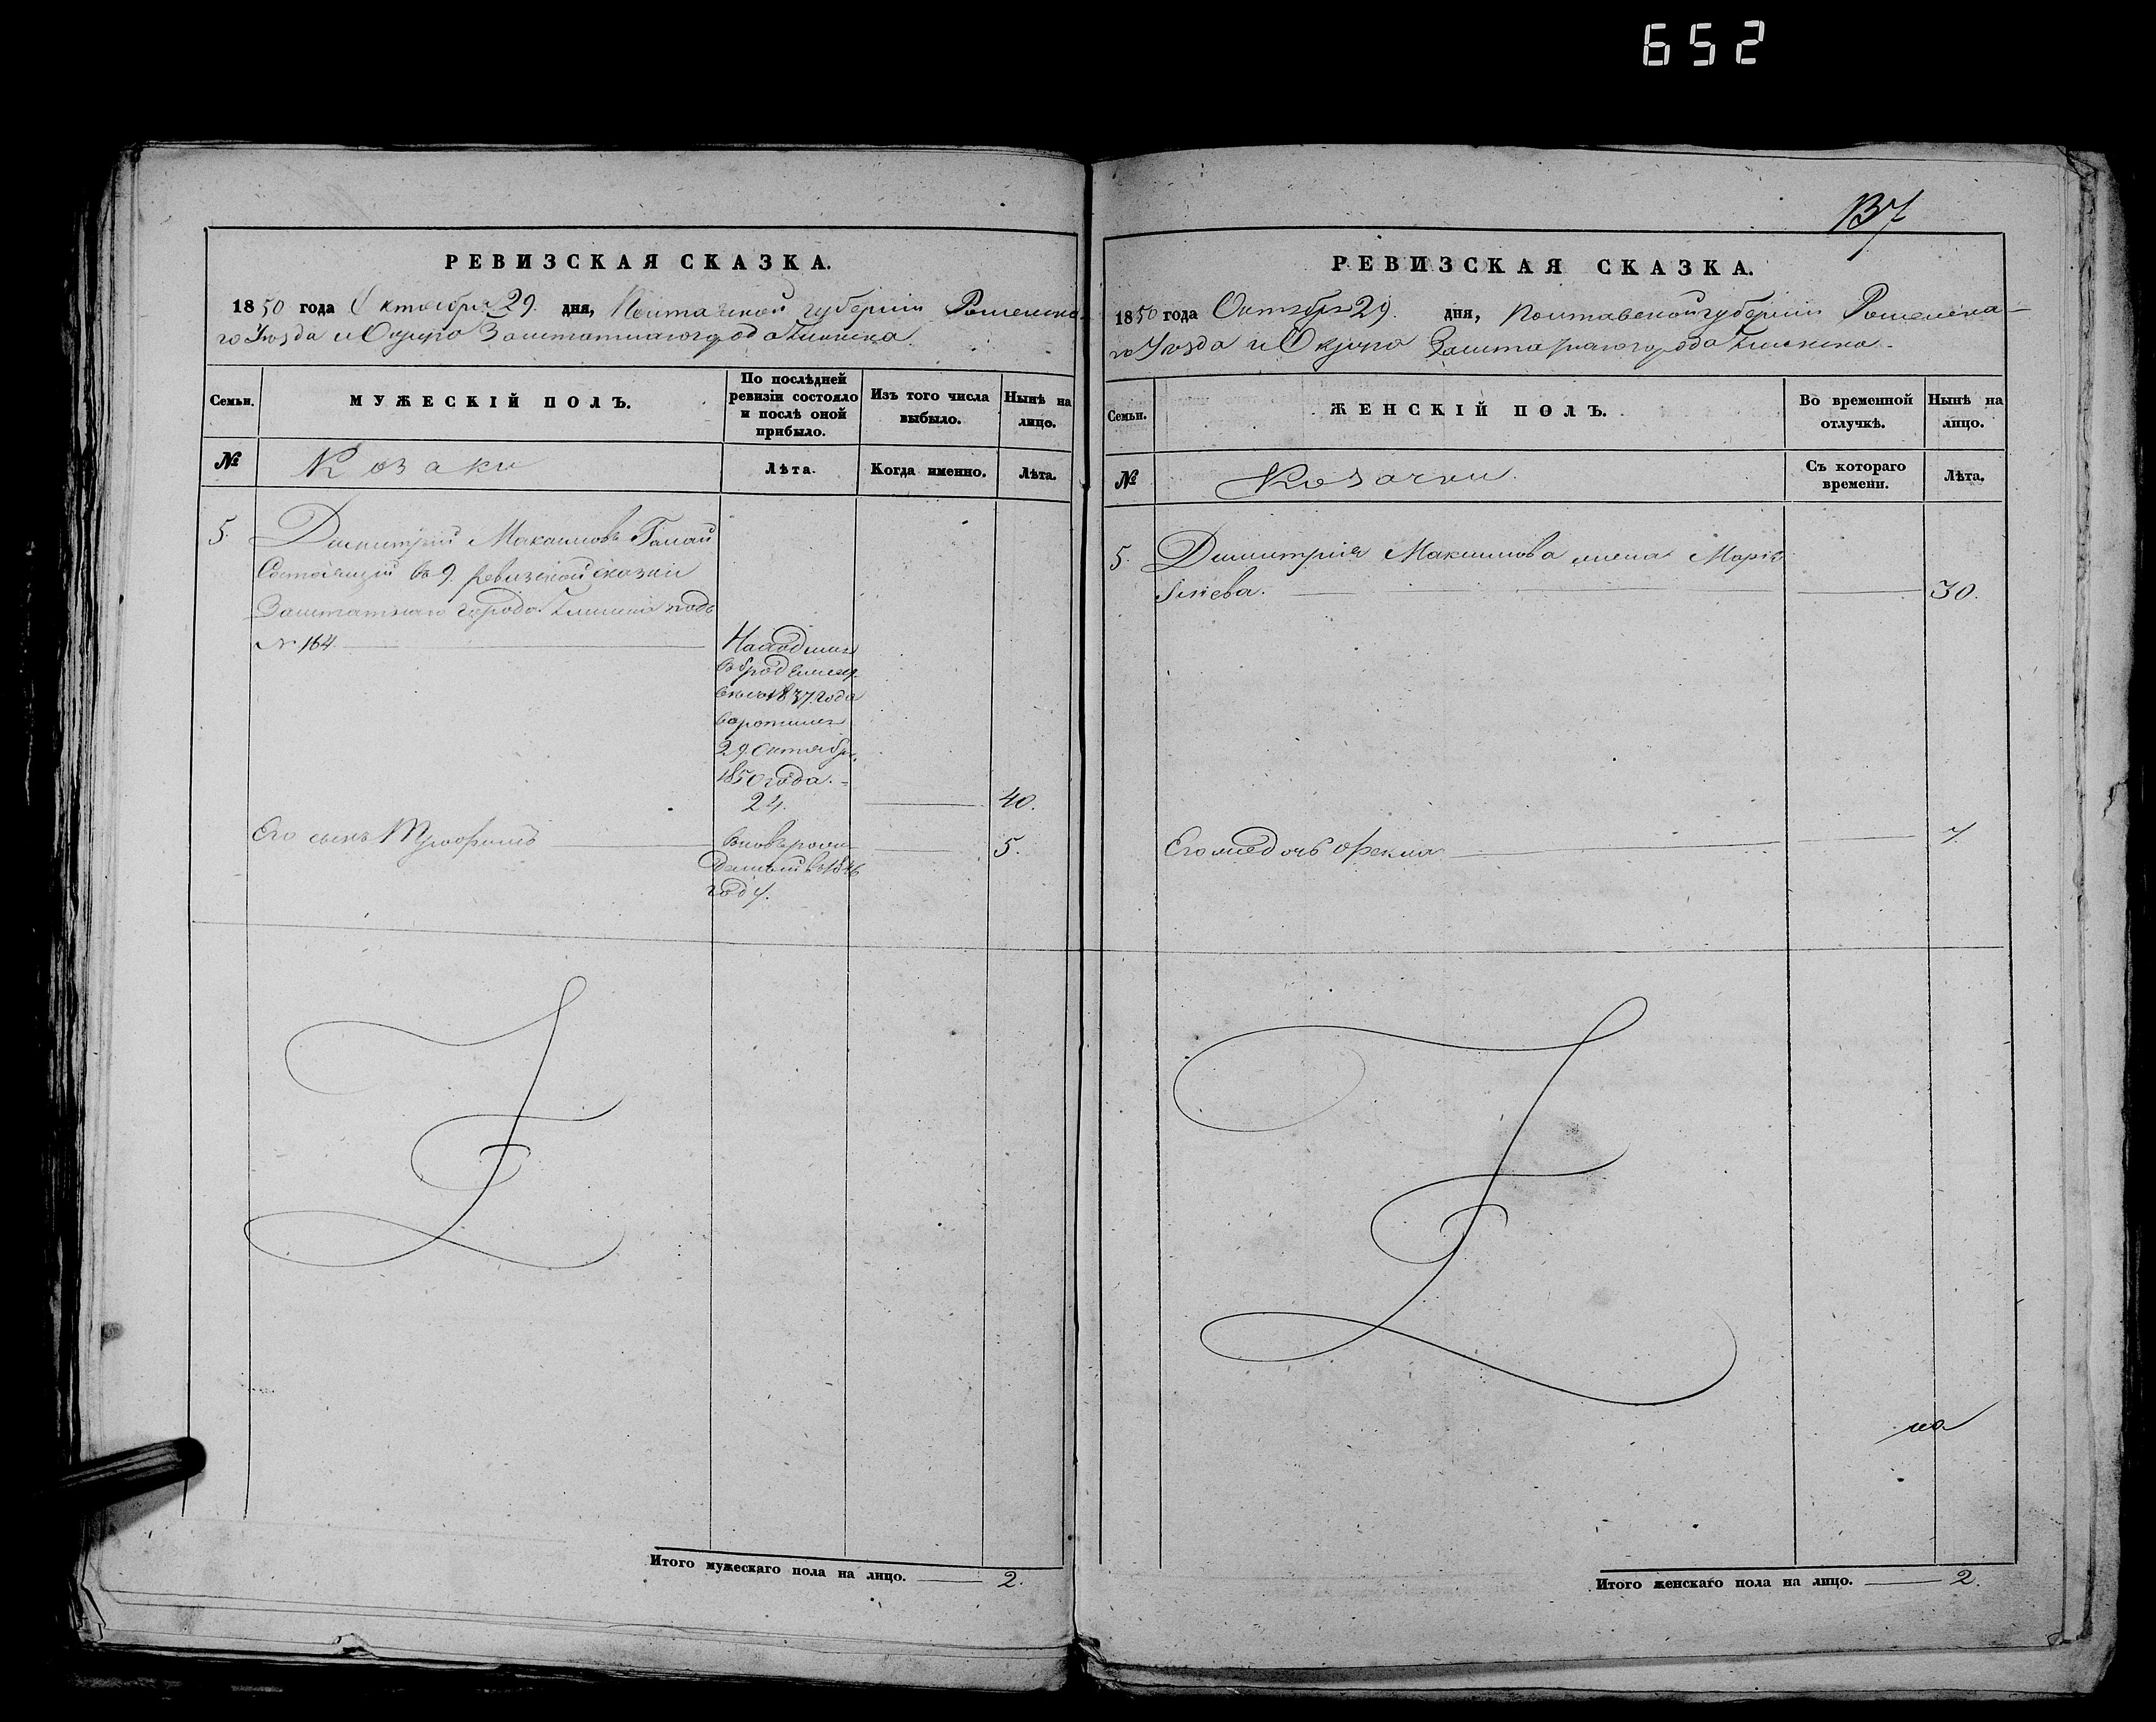 652
РЕВИЗСКАЯ СКАЗКА.
1850 года Октября 29. дня, Полтавской губерніи Роменска-
го Уѣзда и Округа Заштатнаго города Глинска.
Семьи.
МУЖЕСКІЙ ПОЛЪ.
По послѣдней
ревизіи состояло
и послѣ оной
прибыло.
Изъ того числа
выбыло.
Нынѣ на
лицо.
№
Козаки
Лѣта.
Когда именно.
Лѣта.
5.
Димитрій Максимовъ
Состоящій въ 9. ревизской сказки
Заштатнаго города Глинска подъ
№ 164.
Находился
1837 года
29 Октября
1850 года.
24.
40.
Его сынъ
вновьрож
денный въ 1846
году.
5.
Итого мужескаго пола на лицо. 2.
137
РЕВИЗСКАЯ СКАЗКА.
1850 года Октября 29. дня, Полтавской губерніи Роменска-
го Уѣзда и Округа Заштатнаго города Глинска.
Семьи.
ЖЕНСКІЙ ПОЛЪ.
Во временной
отлучкѣ.
Нынѣ на
лицо.
№
Козачки
Съ котораго
времени.
Лѣта.
5.
Димитрія Максимова жена Марія
30.
Его же дочь Фекла
7.
на
Итого женскаго пола на лицо. 2.